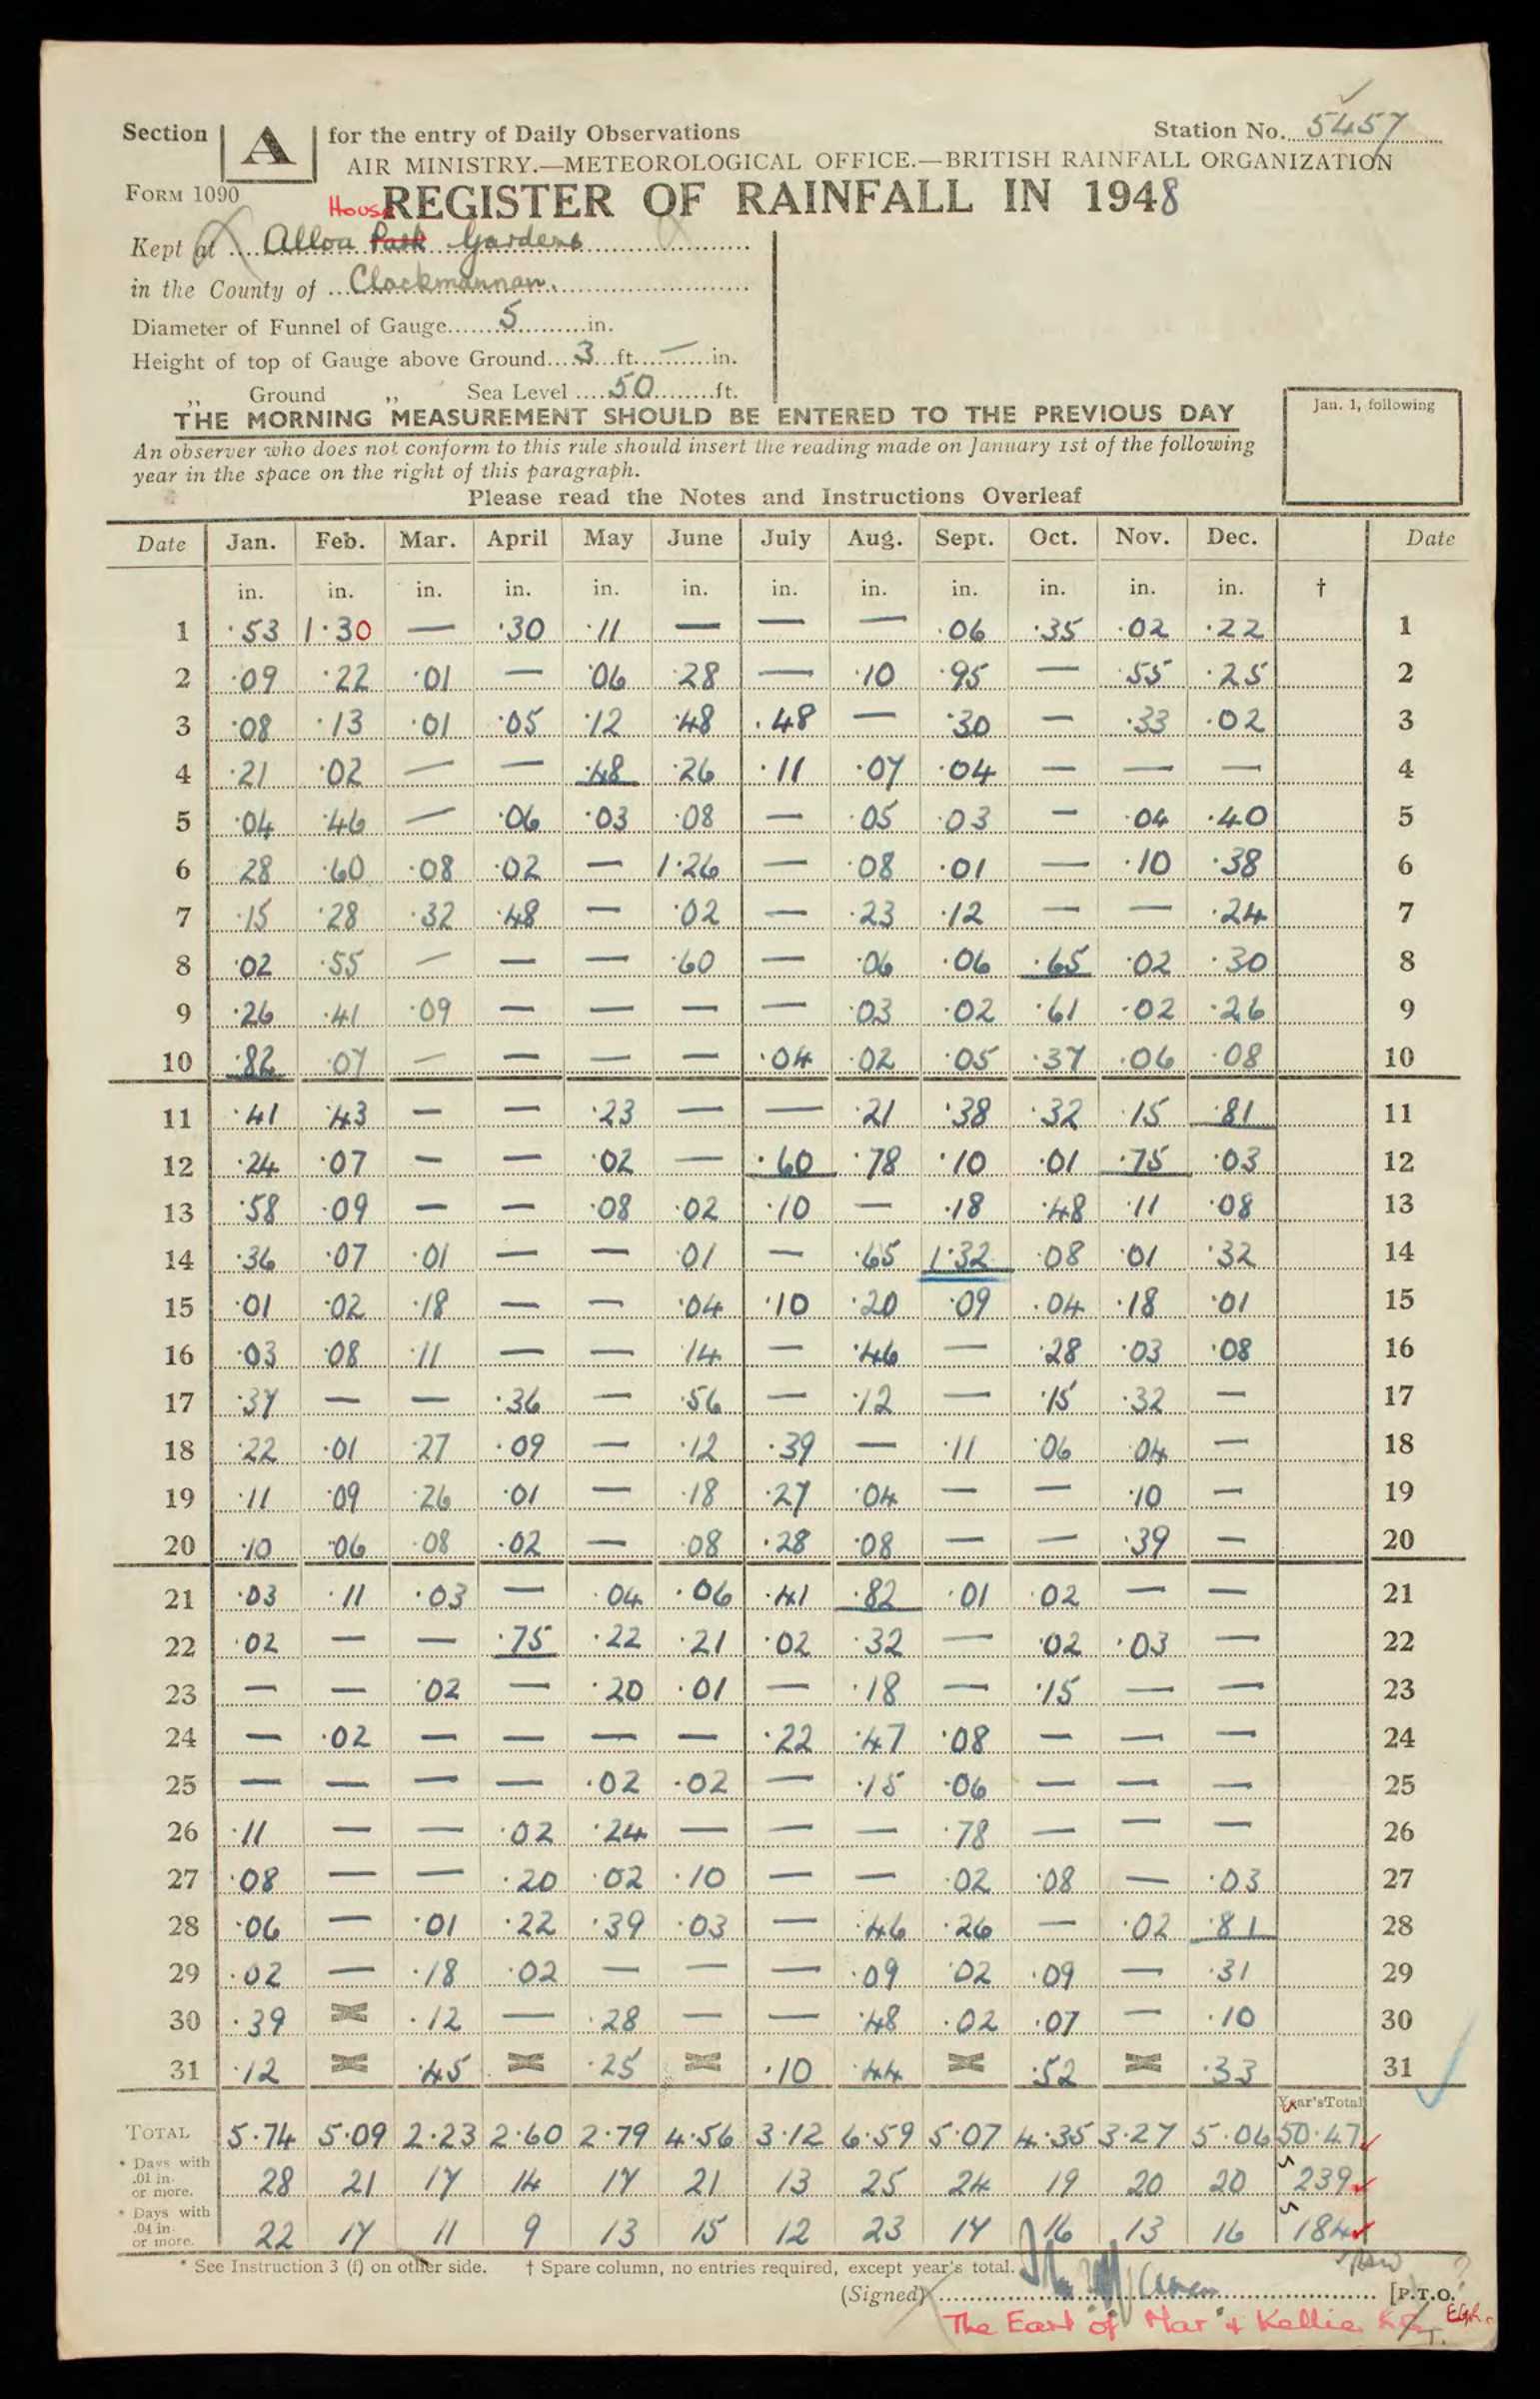 Section A for the entry of Daily Observations Station No. 5457
AIR MINISTRY.—METEOROLOGICAL OFFICE.—BRITISH RAINFALL ORGANIZATION
FORM 1090
House REGISTER OF RAINFALL IN 1948
Kept at Alloa Park Gardens
in the County of Clackmannan.
Diameter of Funnel of Gauge 5 in.
Height of top of Gauge above Ground 3 ft. — in.
„ Ground „ Sea Level 50 ft.
THE MORNING MEASUREMENT SHOULD BE ENTERED TO THE PREVIOUS DAY
Jan. 1, following
An observer who does not conform to this rule should insert the reading made on January 1st of the following
year in the space on the right of this paragraph.
Please read the Notes and Instructions Overleaf
Date Jan. Feb. Mar. April May June July Aug. Sept. Oct. Nov. Dec. Date
in. in. in. in. in. in. in. in. in. in. in. in. †
1 ·53 1·30 — ·30 ·11 — — — ·06 ·35 ·02 ·22 1
2 ·09 ·22 ·01 — ·06 ·28 — ·10 ·95 — ·55 ·25 2
3 ·08 ·13 ·01 ·05 ·12 ·48 ·48 — ·30 — ·33 ·02 3
4 ·21 ·02 — — ·48 ·26 ·11 ·07 ·04 — — — 4
5 ·04 ·46 — ·06 ·03 ·08 — ·05 ·03 — ·04 ·40 5
6 28 ·60 ·08 ·02 — 1·26 — ·08 ·01 — ·10 ·38 6
7 ·15 ·28 ·32 ·48 — ·02 — ·23 ·12 — — ·24 7
8 ·02 ·55 — — — ·60 — ·06 ·06 ·65 ·02 ·30 8
9 ·26 ·41 ·09 — — — — ·03 ·02 ·61 ·02 ·26 9
10 ·82 ·07 — — — — ·04 ·02 ·05 ·37 ·06 ·08 10
11 ·41 ·43 — — ·23 — — ·21 ·38 ·32 ·15 ·81 11
12 ·24 ·07 — — ·02 — ·60 ·78 ·10 ·01 ·75 ·03 12
13 ·58 ·09 — — ·08 ·02 ·10 — ·18 ·48 ·11 ·08 13
14 ·36 ·07 ·01 — — ·01 — ·65 1·32 ·08 ·01 ·32 14
15 ·01 ·02 ·18 — — ·04 ·10 ·20 ·09 ·04 ·18 ·01 15
16 ·03 ·08 ·11 — — ·14 — ·46 — ·28 ·03 ·08 16
17 ·37 — — ·36 — ·56 — ·12 — ·15 ·32 — 17
18 ·22 ·01 ·27 ·09 — ·12 ·39 — ·11 ·06 ·04 — 18
19 ·11 ·09 ·26 ·01 — ·18 ·27 ·04 — — ·10 — 19
20 ·10 ·06 ·08 ·02 — ·08 ·28 ·08 — — ·39 — 20
21 ·03 ·11 ·03 — ·04 ·06 ·41 ·82 ·01 ·02 — — 21
22 ·02 — — ·75 ·22 ·21 ·02 ·32 — ·02 ·03 — 22
23 — — ·02 — ·20 ·01 — ·18 — ·15 — — 23
24 — ·02 — — — — ·22 ·47 ·08 — — — 24
25 — — — — ·02 ·02 — ·15 ·06 — — — 25
26 ·11 — — ·02 ·24 — — — ·78 — — — 26
27 ·08 — — ·20 ·02 ·10 — — ·02 ·08 — ·03 27
28 ·06 — ·01 ·22 ·39 ·03 — ·46 ·26 — ·02 ·81 28
29 ·02 — ·18 ·02 — — — ·09 ·02 ·09 — ·31 29
30 ·39 ·12 — ·28 — — ·48 ·02 ·07 — ·10 30
31 ·12 ·45 ·25 ·10 ·44 ·52 ·33 31
Year's Total
TOTAL 5·74 5·09 2·23 2·60 2·79 4·56 3·12 6·59 5·07 4·35 3·27 5·06 50·47
* Days with .01 in. or more. 28 21 17 14 17 21 13 25 24 19 20 20 239
* Days with .04 in. or more. 22 17 11 9 13 15 12 23 17 16 13 16 184
* See Instruction 3 (f) on other side. † Spare column, no entries required, except year's total.
(Signed) [P.T.O.
The Earl of Mar & Kellie K.T.